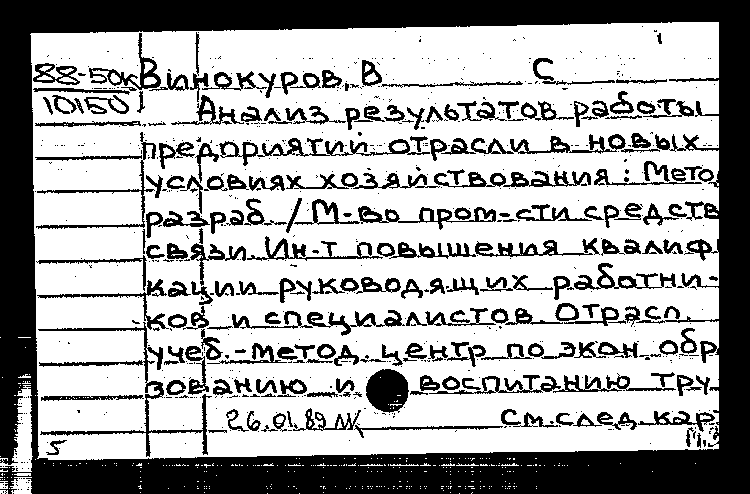 88-50к Винокуров, В С
10150 Анализ результатов работы
предприятий отрасли в новых
условиях хозяйствования : Мето
разраб. / М-во пром-сти средств
связи. Ин-т повышения квалифи
кации руководящих работни-
ков и специалистов. Отрасл.
учеб.-метод. центр по экон. обр
зованию и воспитанию тру
26.01.89
См. след. кар
5